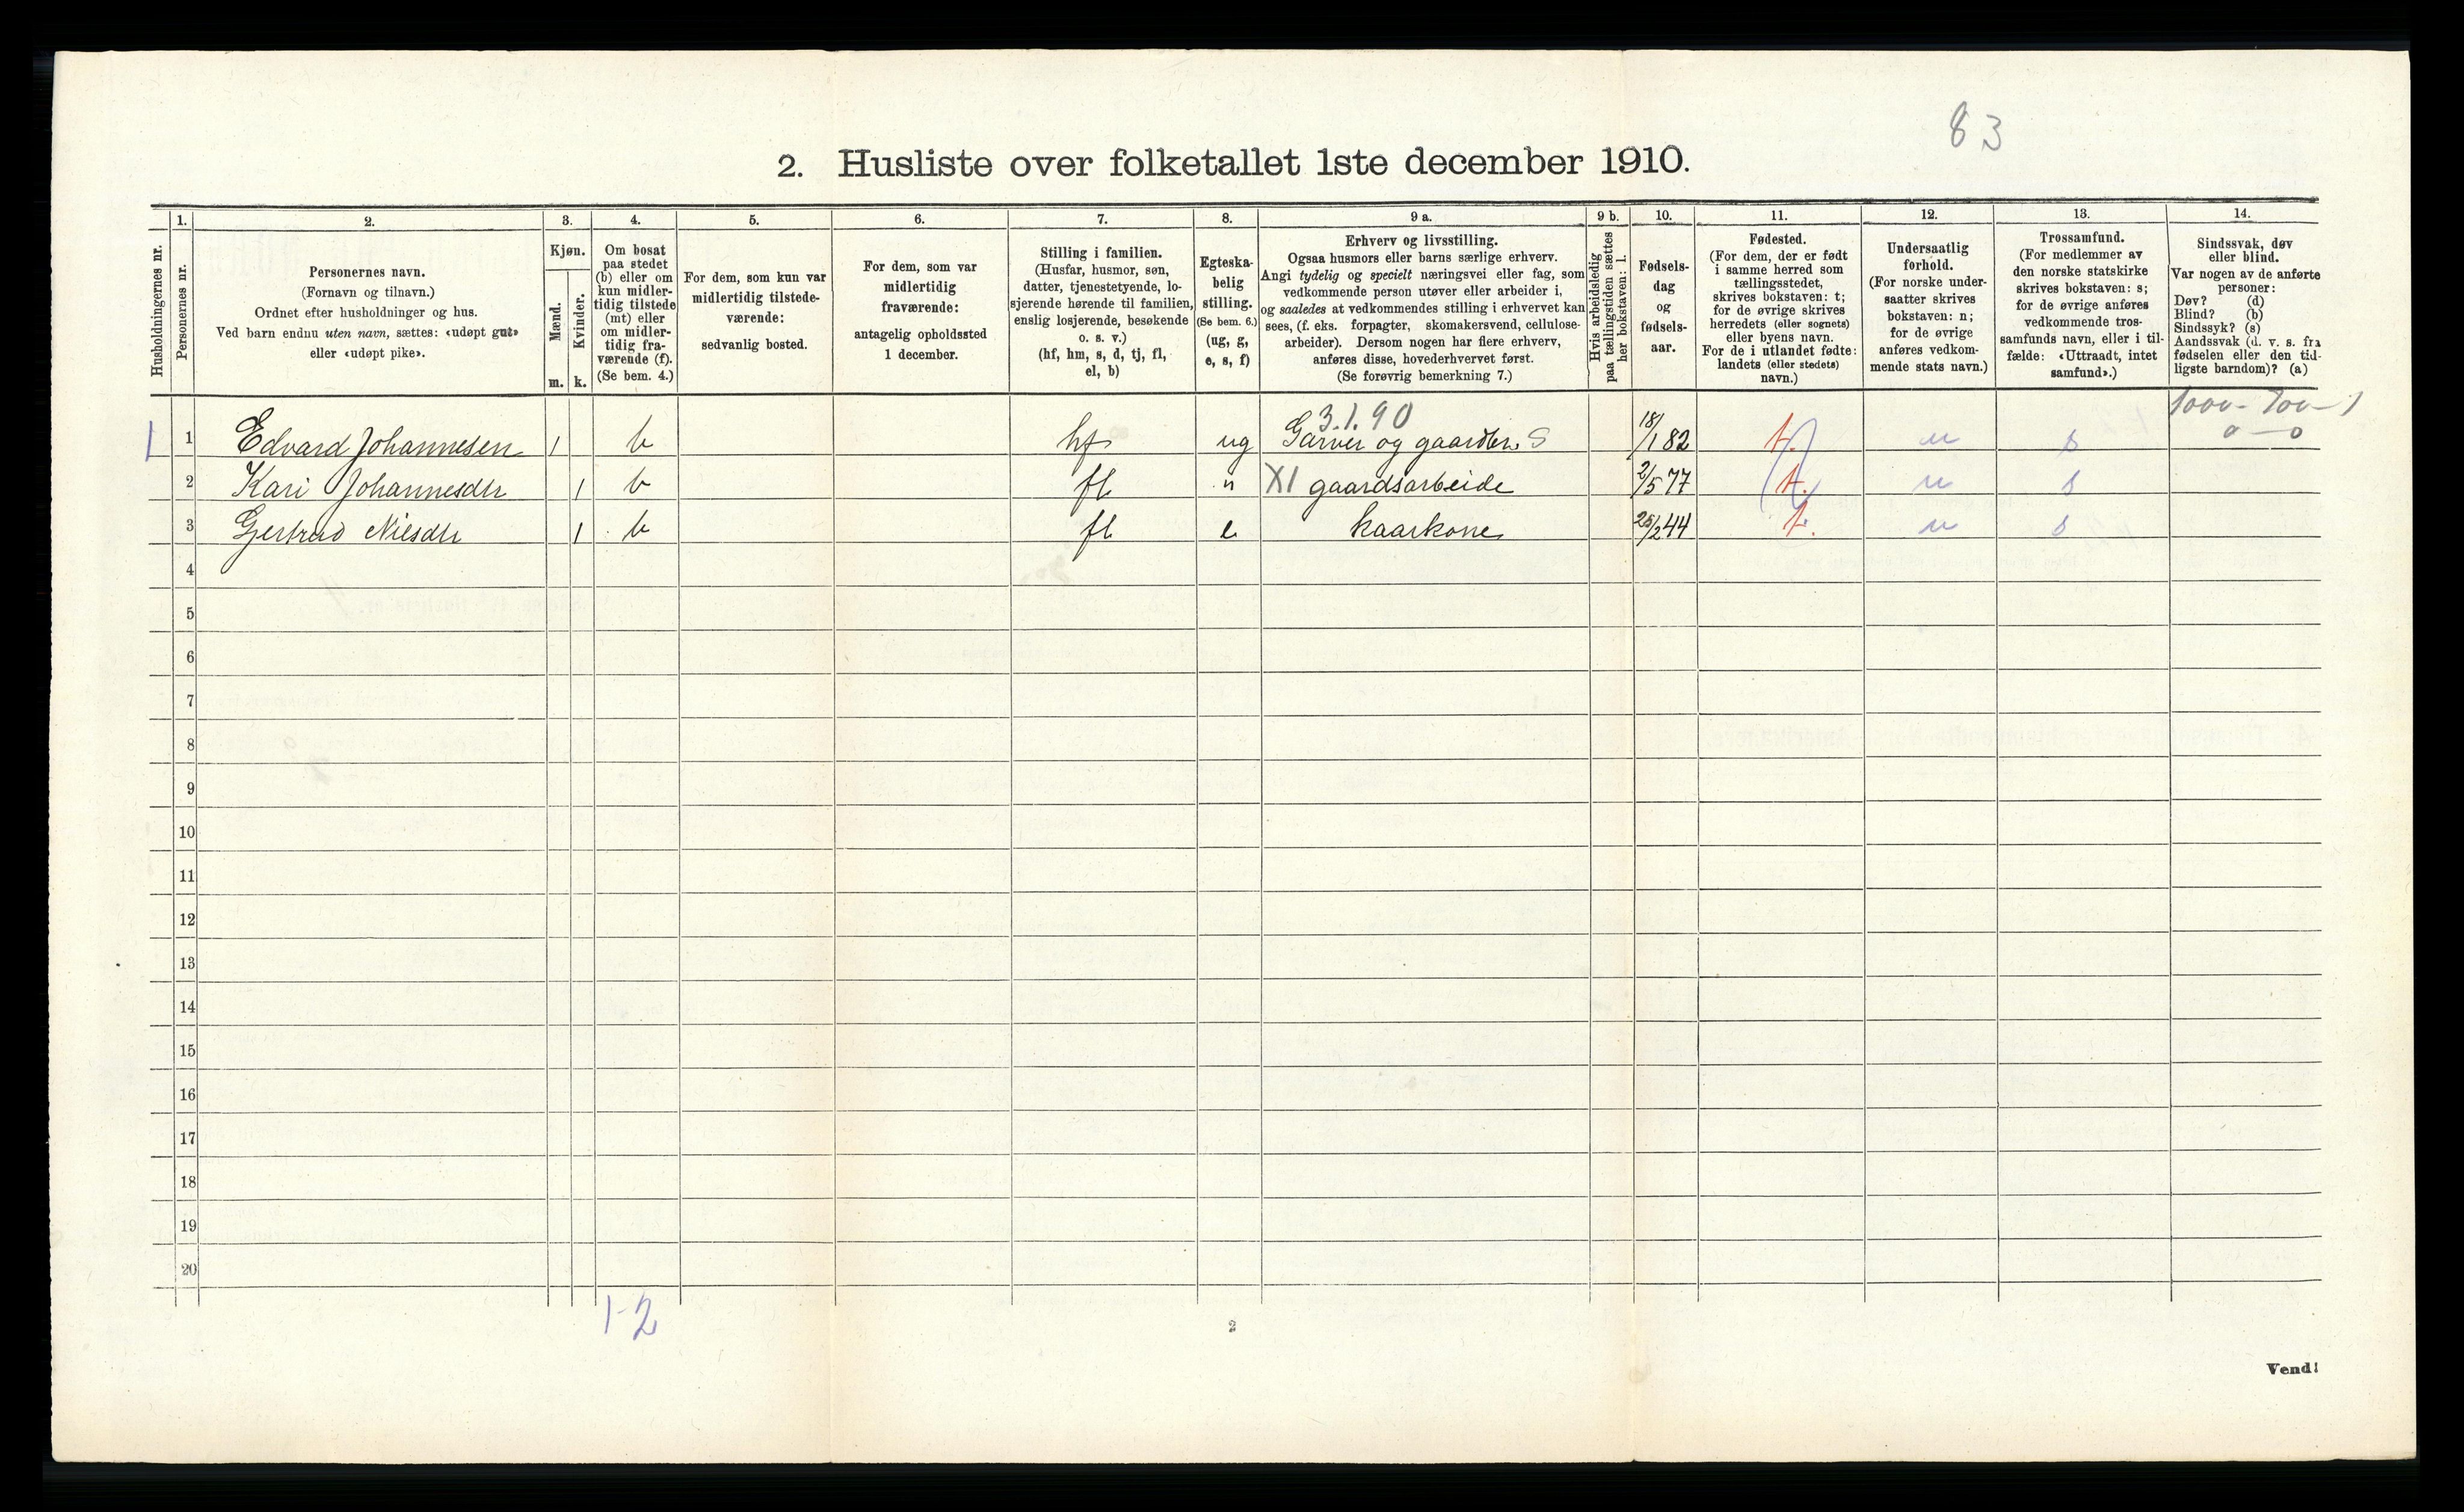 83
2. Husliste over folketallet 1ste december 1910.
Husholdningernes nr.
1.
Personernes nr.
2.
Personernes navn.
(Fornavn og tilnavn.)
Ordnet efter husholdninger og hus.
Ved barn endnu uten navn, sættes: «udøpt gut»
eller «udøpt pike».
3.
Kjøn.
Mænd.
Kvinder.
m. k.
4.
Om bosat
paa stedet
(b) eller om
kun midler-
tidig tilstede
(mt) eller
om midler-
tidig fra-
værende (f).
(Se bem. 4.)
5.
For dem, som kun var
midlertidig tilstede-
værende:
sedvanlig bosted.
6.
For dem, som var
midlertidig
fraværende:
antagelig opholdssted
1 december.
7.
Stilling i familien.
(Husfar, husmor, søn,
datter, tjenestetyende, lo-
sjerende hørende til familien,
enslig losjerende, besøkende
o. s. v.)
(hf, hm, s, d, tj, fl,
el, b)
8.
Egteska-
belig
stilling.
(Se bem. 6.)
(ug, g,
e, s, f)
9 a.
Erhverv og livsstilling.
Ogsaa husmors eller barns særlige erhverv.
Angi tydelig og specielt næringsvei eller fag, som
vedkommende person utøver eller arbeider i,
og saaledes at vedkommendes stilling i erhvervet kan
sees, (f. eks. forpagter, skomakersvend, cellulose-
arbeider). Dersom nogen har flere erhverv,
anføres disse, hovederhvervet først.
(Se forøvrig bemerkning 7.)
9 b.
Hvis arbeidsledig
paa tællingstiden sættes
her bokstaven: l.
10.
Fødsels-
dag
og
fødsels-
aar.
11.
Fødested.
(For dem, der er født
i samme herred som
tællingsstedet,
skrives bokstaven: t;
for de øvrige skrives
herredets (eller sognets)
eller byens navn.
For de i utlandet fødte:
landets (eller stedets)
navn.)
12.
Undersaatlig
forhold.
(For norske under-
saatter skrives
bokstaven: n;
for de øvrige
anføres vedkom-
mende stats navn.)
13.
Trossamfund.
(For medlemmer av
den norske statskirke
skrives bokstaven: s;
for de øvrige anføres
vedkommende tros-
samfunds navn, eller i til-
fælde: «Uttraadt, intet
samfund».)
14.
Sindssvak, døv
eller blind.
Var nogen av de anførte
personer:
Døv? (d)
Blind? (b)
Sindssyk? (s)
Aandssvak (d. v. s. fra
fødselen eller den tid-
ligste barndom)? (a)
3.1.90
1000-700-1
0-0
1 1 Edvard Johannesen 1 b hf ug Garver og gaardbr. S 18/1 82 t. n s
2 Kari Johannesdtr 1 b fl " XI gaardsarbeide 2/5 77 t. n s
3 Gertrud Nilsdtr 1 b fl e kaarkone 25/2 44 t. n s
4
5
6
7
8
9
10
11
12
13
14
15
16
17
18
19
20
1-2
2
Vend!